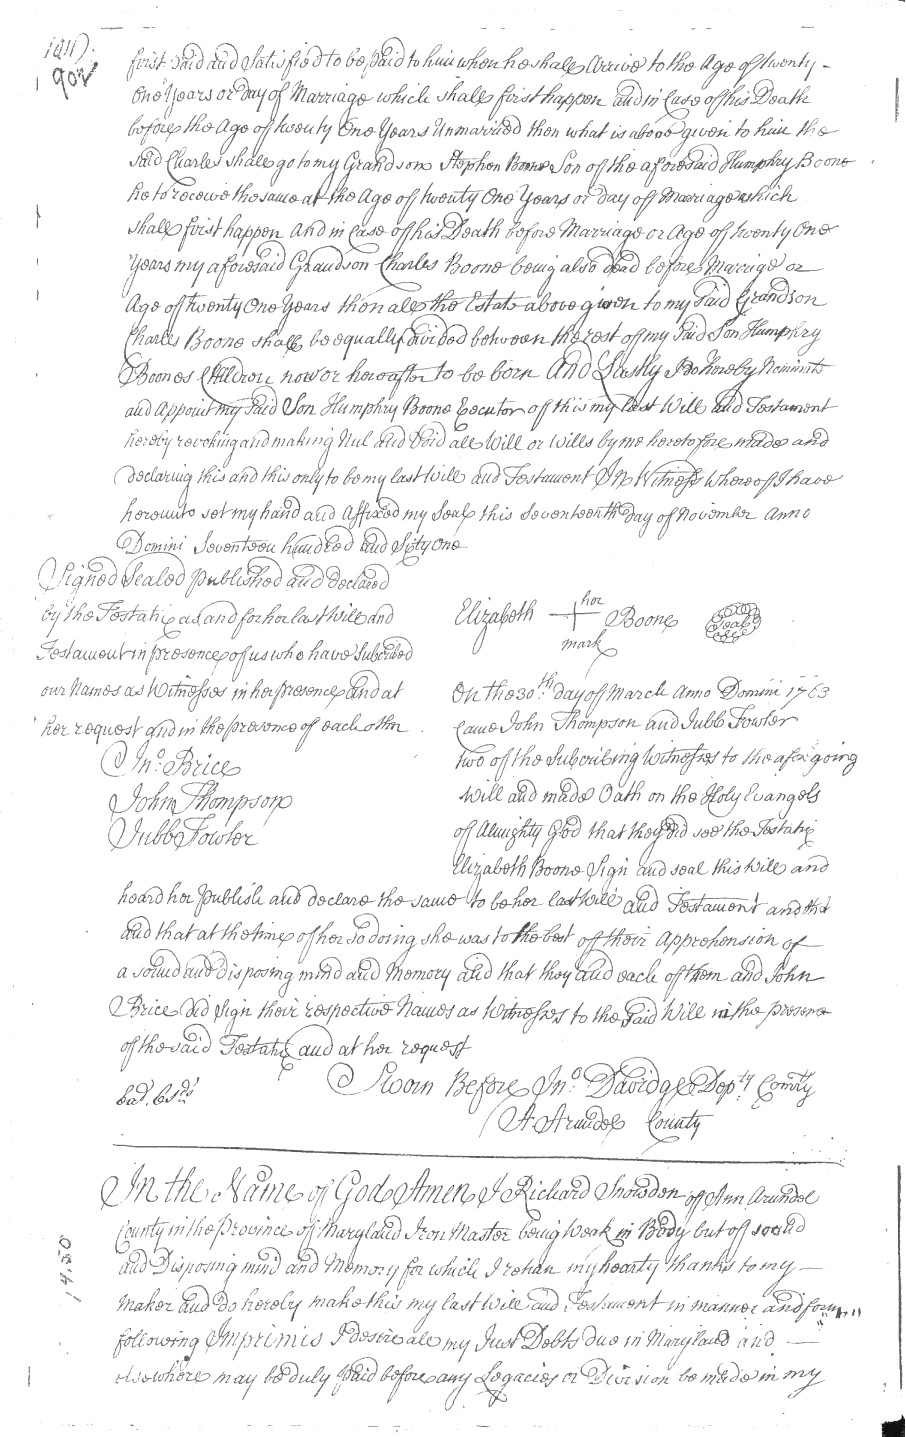 902
first Paid and Satisfied to be Paid to him when he shall Arrive to the Age of twenty –
One Years or Day of Marriage which shall first happen and in Case of his Death
before the Age of twenty One Years Unmarried then what is above given to him the
Said Charles shall go to my Grandson Stephen Boone Son of the aforesaid Humphry Boone
he to receive the same at the Age of twenty One Years or day of Marriage which
shall first happen and in Case of his Death before Marriage or Age of twenty One
Years my aforesaid Grandson Charles Boone being also dead before Marrige or
Age of twenty One Years then all the Estate above given to my Said Grandson
Charles Boone shall be equally divided between the rest of my Said Son Humphry
Boones Children now or hereafter to be born And Lastly I Do hereby Nominate
and Appoint my Said Son Humphry Boone Executor of this my last Will and Testament
hereby revoking and making Nul and Void all Will or Wills by me heretofore made and
declaring this and this only to be my last Will and Testament In Witness Whereof I have
hereunto set my hand and Affixed my Seal this Seventeenth day of November Anno
Domini Seventeen hundred and Sixty One
Signed Sealed published and declared
by the Testatix as and for her last Will and
Testament in presence of us who have Subscribed
our Names as Witnesses in her presence and at
her request and in the presence of each other
Jno. Brice
John Thompson
Jubb Fowler
Elizabeth her mark Boone Seal
On the 30th. day of March Anno Domini 1763
Came John Thompson and Jubb Fowler
two of the Subscribing Witnesses to the afore going
Will and made Oath on the Holy Evangels
of Almighty God that they did see the Testatix
Elizabeth Boone Sign and seal this Will and
heard her Publish and declare the same to be her last Will and Testament and that
and that at the time of her So doing she was to the best of their Apprehension of
a sound and disposing mind and Memory and that they and each of them and John
Brice did Sign their respective Names as Witnesses to the Said Will in the presence
of the said Testatix and at her request
Sworn Before Jno. Davidge Depty. Comrty
A Arundel County
In the Name of God Amen I Richard Snowden of Ann Arundel
County in the Province of Maryland Iron Master being Weak in Body but of sound
and Disposing mind and Memory for which I return my hearty thanks to my –
Maker and do hereby make this my last Will and Testament in manner and form
following Imprimis I desire all my Just Debts due in Maryland and –
elsewhere may be duly Paid before any Legacies or Division be made in my